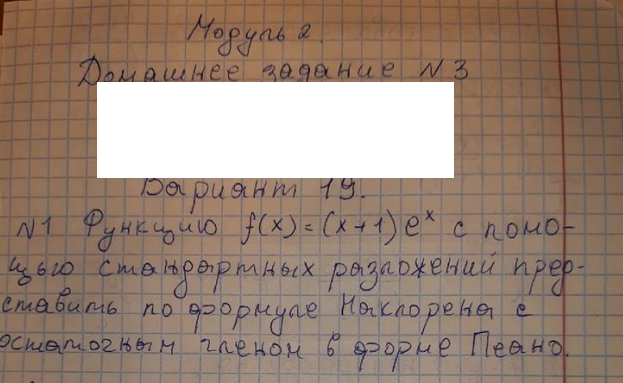 Модуль 2.
Домашнее задание N3
Вариант 19.
N1 Функцию f(x)=(x+1)eˣ с помо-
щью стандартных разложений пред-
ставить по формуле Маклорена с
остаточным членом в форме Пеано.